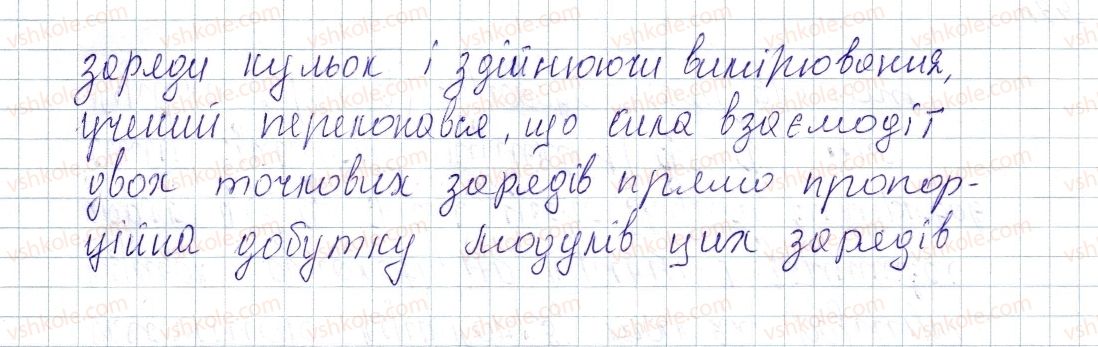 заряди кульок і здійнюючи вимірювання,
учений переконався, що сила взаємодії
двох точкових зарядів прямо пропор-
ційна добутку модулів цих зарядів